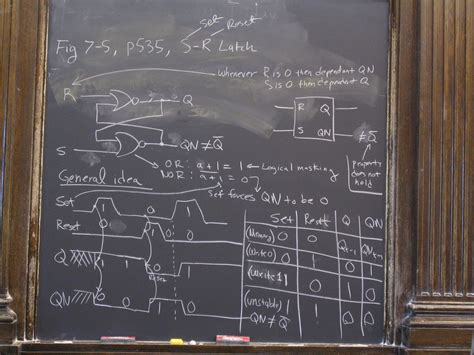 Set Reset
Fig 7-5, p535, S-R Latch
Whenever R is 0 then dependant QN
S is 0 then dependant Q
R Q
R Q
S QN
S QN ≠ Q̅
≠ Q̅
property does not hold
OR: a+1 = 1 ← Logical masking
NOR: a+1 = 0
General idea
Set forces QN to be 0
Set 0 1 0
Reset 0 1 0
Q 0 1 0
QN 0 1 0
Set Reset Q QN
(Memory) 0 0 Qt-1 QNt-1
(Write 0) 0 1 0 1
(Write 1) 1 0 1 0
(unstable) 1 1 0 0
QN ≠ Q̅